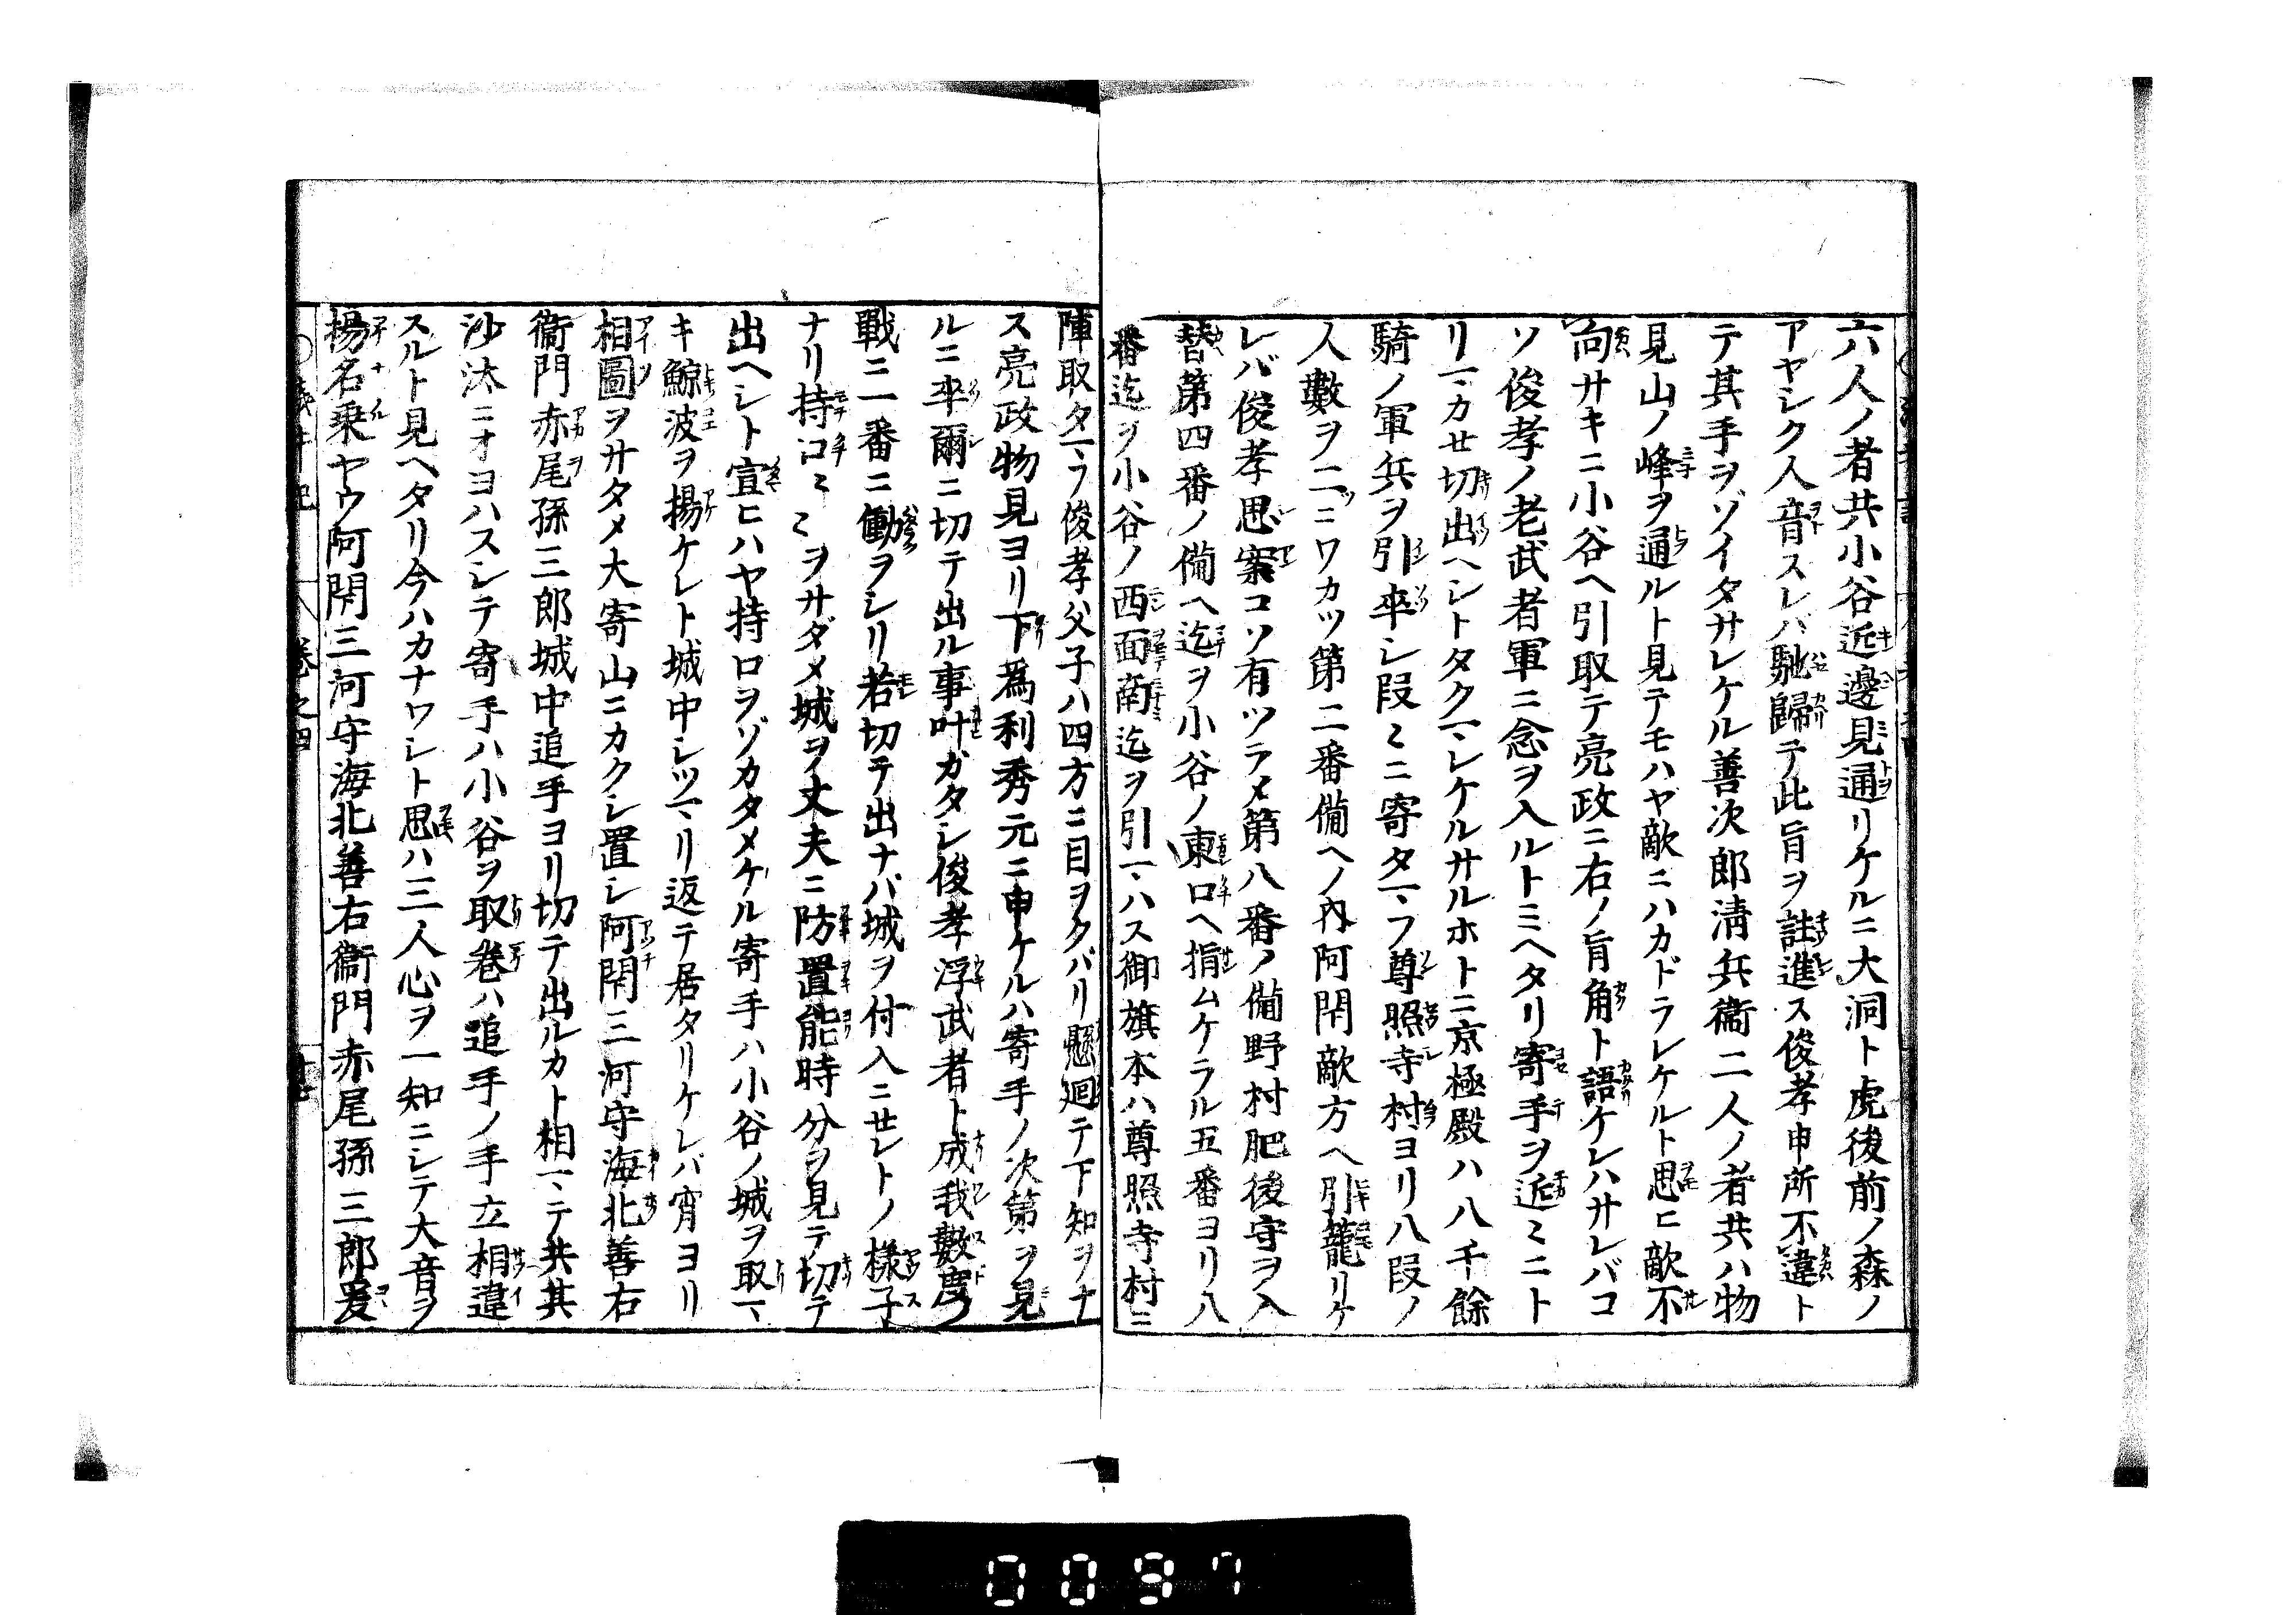 六人ノ者共小谷近邊見通リケルニ大洞ト虎後前ノ森ノ
アヤシク人音スレバ馳歸テ此旨ヲ註進ス俊孝申所不違ト
テ其手ヲゾイタサレケル善次郎淸兵衞二人ノ者共ハ物
見山ノ峰ヲ通ルト見テモハヤ敵ニハカドラレケルト思ヒ敵不
向サキニ小谷ヘ引取テ亮政ニ右ノ旨角ト語ケレハサレバコ
ソ俊孝ノ老武者軍ニ念ヲ入ルトミヘタリ寄手ヲ近〻ニト
リマカセ切出ヘシトタクマレケルサルホトニ京極殿ハ八千餘
騎ノ軍兵ヲ引率シ段〻ニ寄タマフ尊照寺村ヨリ八段ノ
人數ヲ二ツニワカツ第二番備ヘノ內阿閇敵方ヘ引籠リケ
レバ俊孝思案コソ有ツラメ第八番ノ備野村肥後守ヲ入
替第四番ノ備ヘ迄ヲ小谷ノ東口ヘ指ムケラル五番ヨリ八
番迄ヲ小谷ノ西面南迄ヲ引マハス御旗本ハ尊照寺村ニ
陣取タマフ俊孝父子ハ四方ニ目ヲクバリ懸廻テ下知ヲナ
ス亮政物見ヨリ下爲利秀元ニ申ケルハ寄手ノ次第ヲ見
ルニ卒爾ニ切テ出ル事叶ガタシ俊孝浮武者ト成我數度ノ
戰ニ一番ニ働ヲシリ若切テ出ナバ城ヲ付入ニセレトノ樣子
ナリ持口〻〻ヲサダメ城ヲ丈夫ニ防置能時分ヲ見テ切テ
出ヘシト宣ヒハヤ持口ヲゾカタメケル寄手ハ小谷ノ城ヲ取マ
キ鯨波ヲ揚ケレト城中シツマリ返テ居タリケレバ宵ヨリ
相圖ヲサタメ大寄山ニカクシ置シ阿閇三河守海北善右
衞門赤尾孫三郎城中追手ヨリ切テ出ルカト相マテ共其
沙汰ニオヨハスシテ寄手ハ小谷ヲ取卷ハ追手ノ手立相違
スルト見ヘタリ今ハカナワシト思ハ三人心ヲ一知ニシテ大音ヲ
揚名乗ヤウ阿閇三河守海北善右衞門赤尾孫三郎爰
卷之四